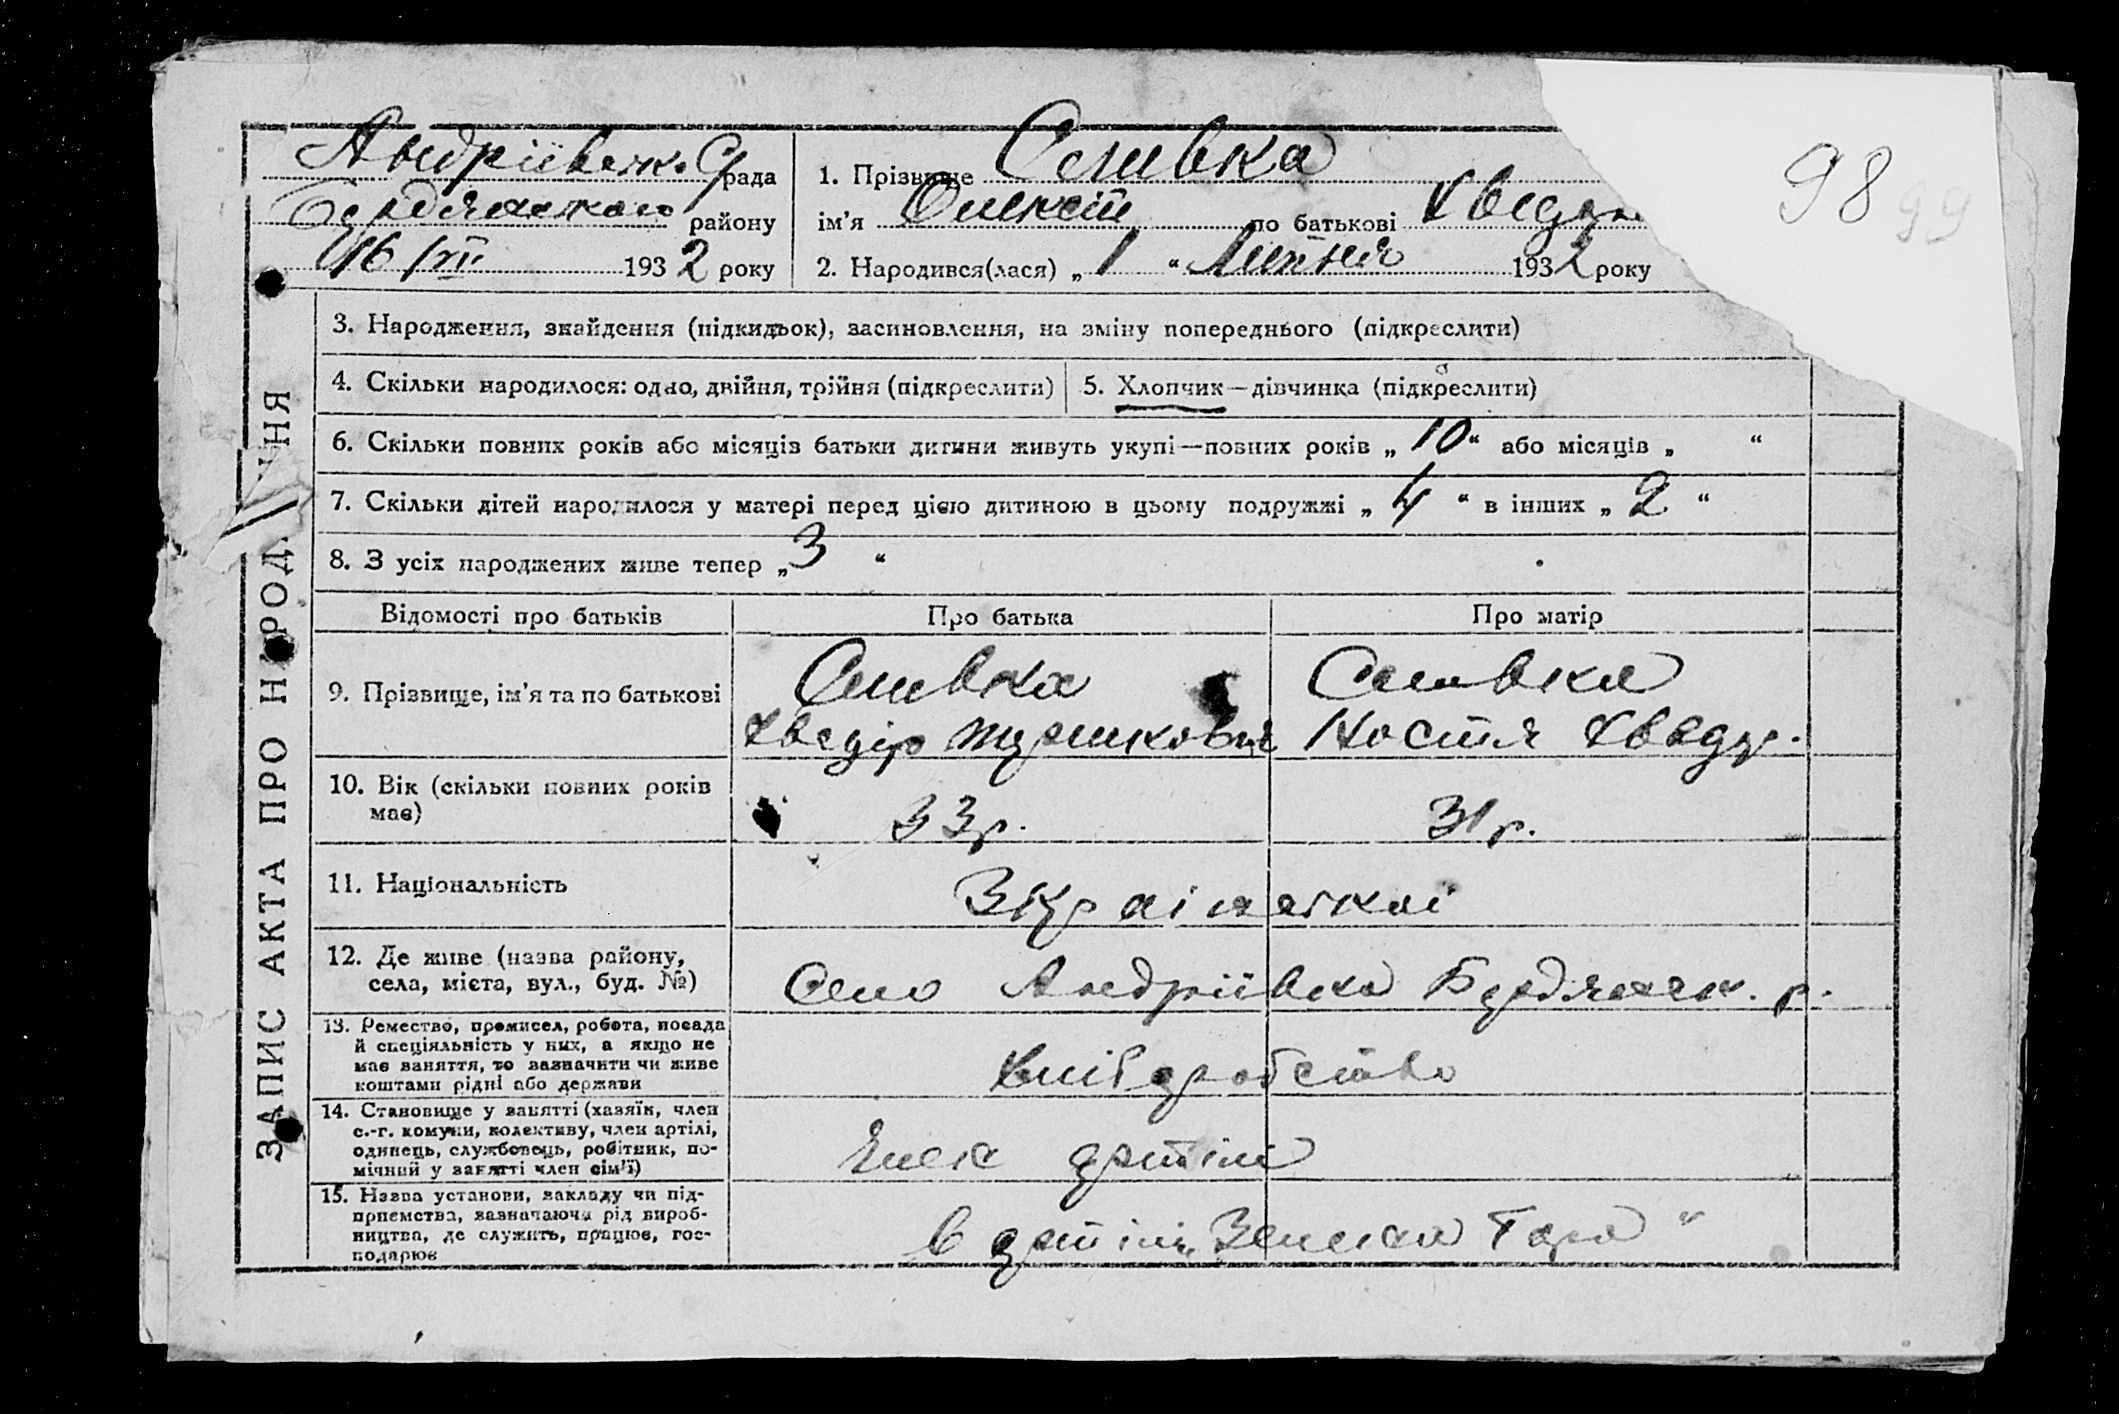 Андрієвськ. С/рада
Бердянського району
16/VII 1932 року
1. Прізвище Сливка
ім'я Олексій по батькові Хведор
2. Народився(лася) „1“ Липня 1932 року
98
99
3. Народження, знайдення (підкидьок), засиновлення, на зміну попереднього (підкреслити)
4. Скільки народилося: одно, двійня, трійня (підкреслити)
5. Хлопчик—дівчинка (підкреслити)
6. Скільки повних років або місяців батьки дитини живуть укупі—повних років „10“ або місяців „ “
7. Скільки дітей народилося у матері перед цією дитиною в цьому подружжі „4“ в інших „2“
8. З усіх народжених живе тепер „3“
ЗАПИС АКТА ПРО НАРОД ННЯ
Відомості про батьків Про батька Про матір
9. Прізвище, ім'я та по батькові
Сливка
Хведір
Сливка
Настя Хведур.
10. Вік (скільки повних років
має)
33р.
31р.
11. Національність
Вкраінські
12. Де живе (назва району,
села, міста, вул., буд. №)
Село Андріівка Бердянськ. р.
13. Ремество, промисел, робота, посада
й спеціяльність у них, а якщо не
має заняття, то зазначити чи живе
коштами рідні або держави
Хлібуробство
14. Становище у занятті (хазяїн, член
с.-г. комуни, колективу, член артілі,
одинець, службовець, робітник, по-
мічний у занятті член сім'ї)
Член артілі
15. Назва установи, закладу чи під-
приємства, зазначаючи рід вироб-
ництва, де служить, працює, гос-
подарює
в артілі „Зелений Гара“